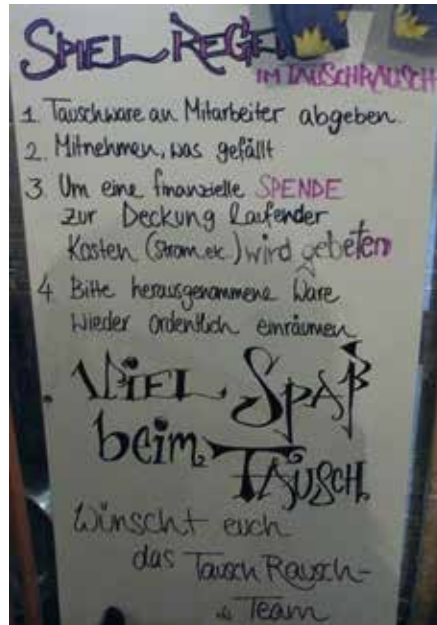 SPIEL REGEL
IM TAUSCHRAUSCH
1. Tauschware an Mitarbeiter abgeben.
2. Mitnehmen, was gefällt
3. Um eine finanzielle SPENDE
zur Deckung laufender
Kosten (Strom etc.) wird gebeten
4 Bitte herausgenommene Ware
wieder ordentlich einräumen
VIEL SPAß
beim
TAUSCH
Wünscht euch
das Tausch Rausch-
Team